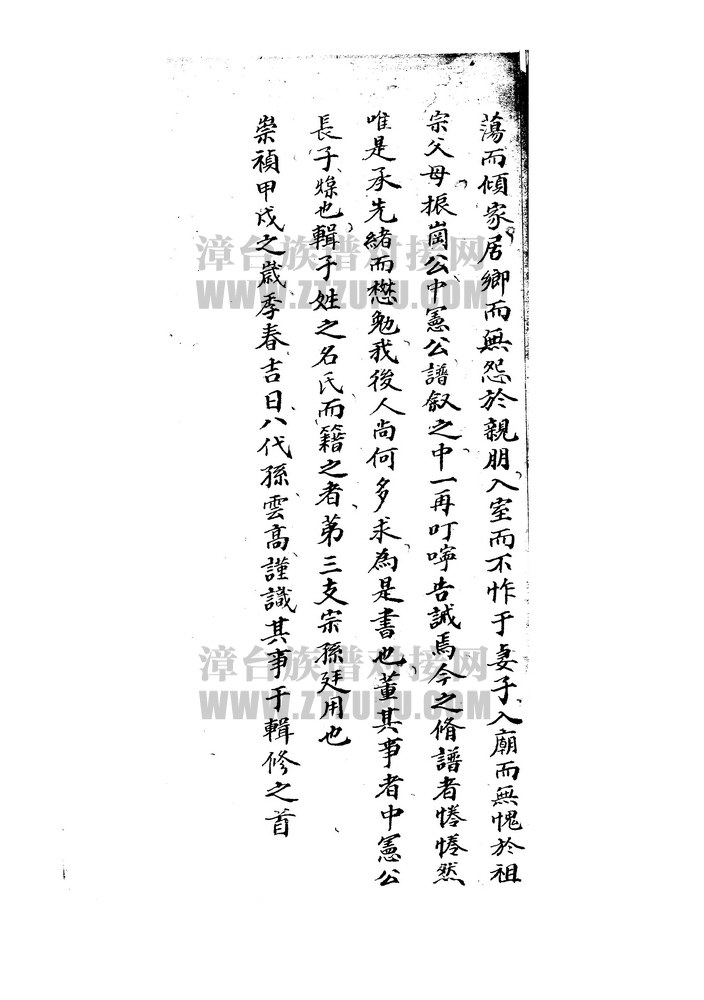 蕩而傾家居鄉而無怨於親朋入室而不怍于妻子入廟而無愧於祖
宗父母振崗公中憲公譜叙之中一再叮嚀告誡焉今之脩譜者惓惓然
唯是承先緒而懋勉我後人尚何多求為是書也董其事者中憲公
長子也輯子姓之名氏而籍之者第三支宗孫廷用也
崇禎甲戌之歲季春吉日八代孫雲高謹識其事于輯修之首
漳台族谱对接网
WWW.ZTZUPU.COM
漳台族谱对接网
WWW.ZTZUPU.COM